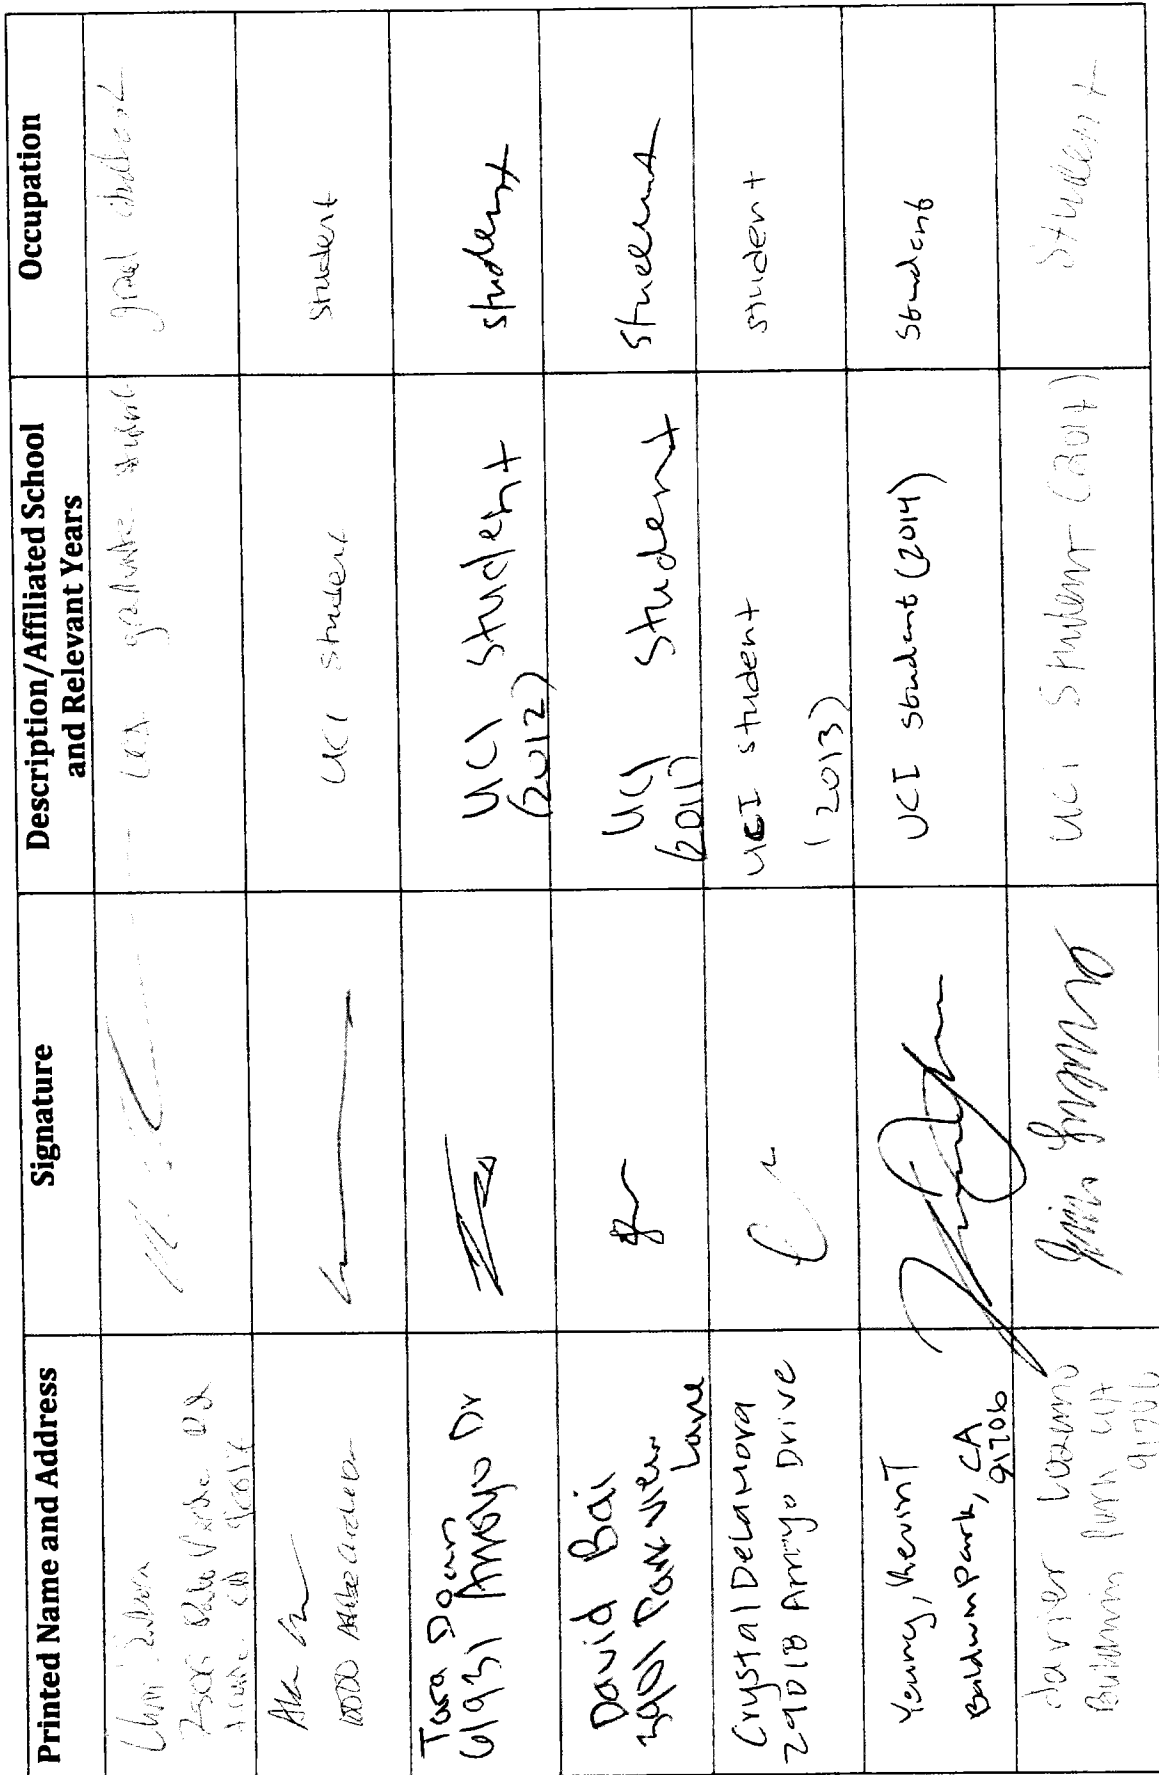 Printed Name and Address
Signature
Description/Affiliated School
and Relevant Years
Occupation
graduate student
grad student
UCI student
student
Tara Doan
6931 Arroyo Dr
UCI student
(2012)
student
David Bai
3901 Park View
Lane
UCI student
(2011)
student
Crystal DelaMora
2901B Arroyo Drive
UCI student
(2013)
student
Yeung, Kevin T
Baldwin Park, CA
91706
UCI student (2014)
student
Javier
Baldwin Park CA
91706
UCI Student (2014)
Student